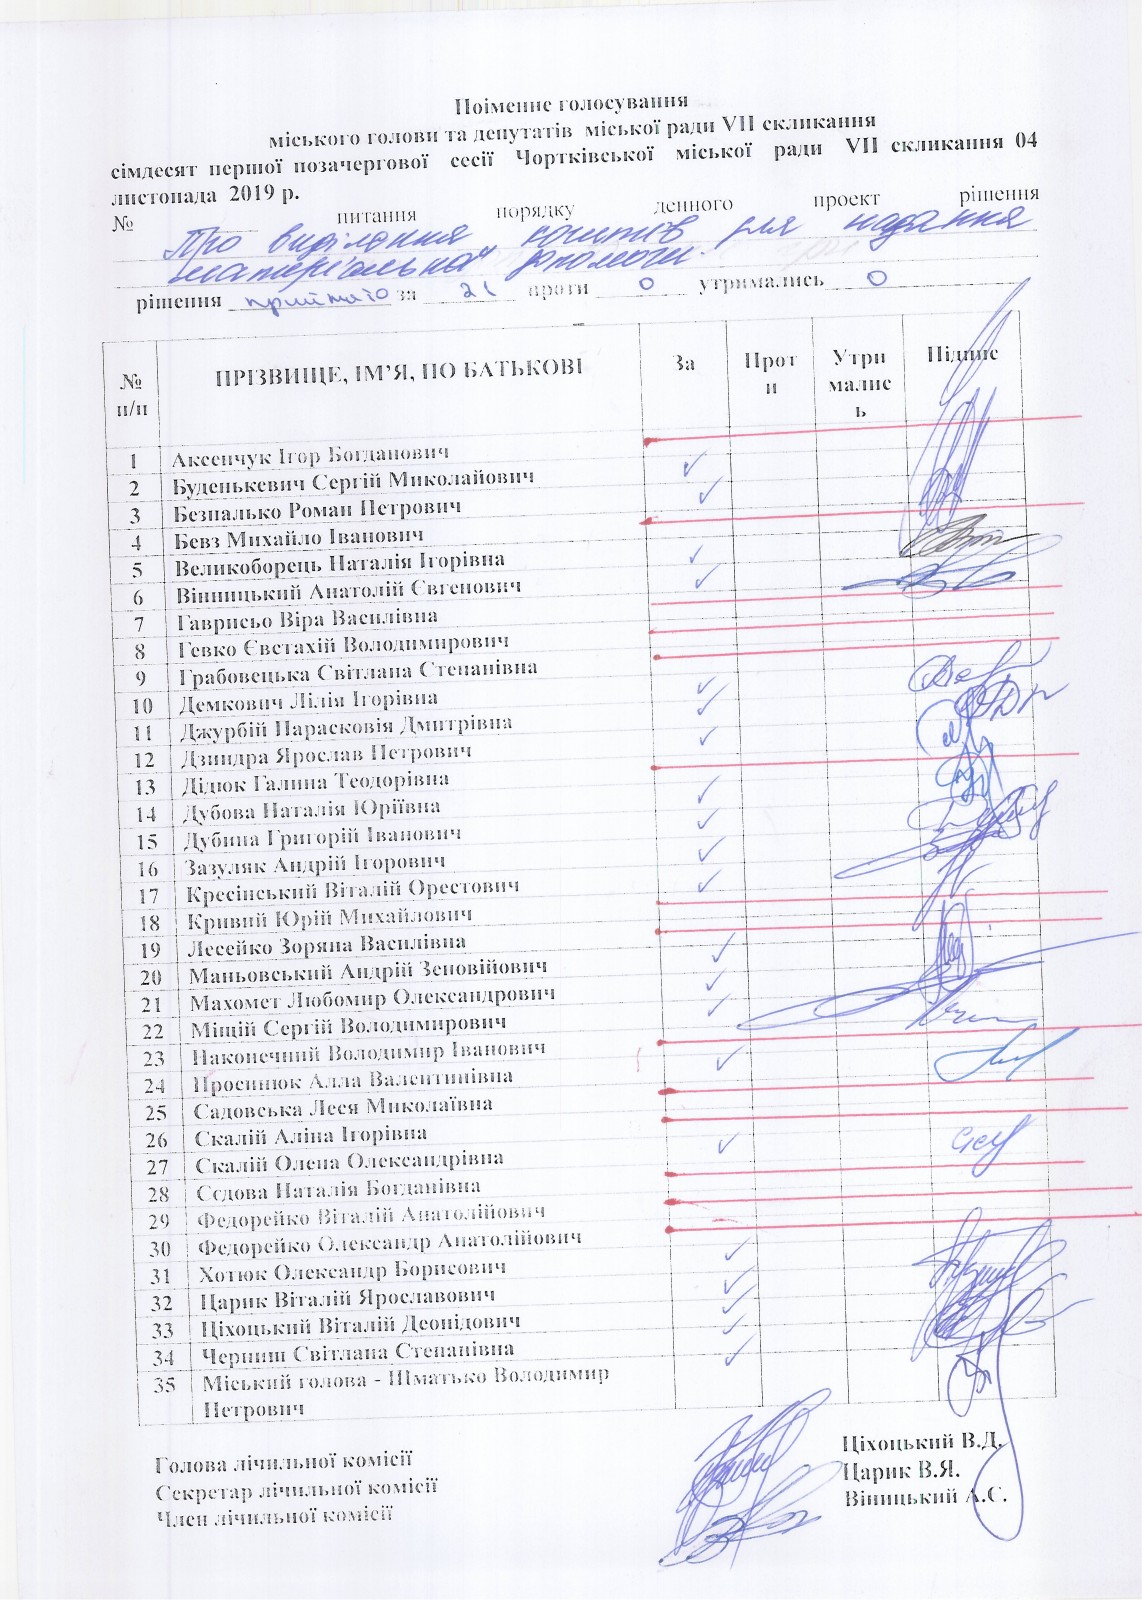 Поіменне голосування
міського голови та депутатів міської ради VII скликання
сімдесят першої позачергової сесії Чортківської міської ради VII скликання 04
листопада 2019 р.
№ питання порядку денного проект рішення
Про виділення коштів для надання
матеріальної допомоги.
рішення прийнято за 21 проти 0 утримались 0
№ п/п ПРІЗВИЩЕ, ІМ’Я, ПО БАТЬКОВІ За Проти Утрималися Підпис
1 Аксенчук Ігор Богданович
2 Буденькевич Сергій Миколайович ✓
3 Безпалько Роман Петрович ✓
4 Бевз Михайло Іванович
5 Великоборець Наталія Ігорівна ✓
6 Вінницький Анатолій Євгенович ✓
7 Гаврисьо Віра Василівна
8 Гевко Євстахій Володимирович
9 Грабовецька Світлана Степанівна
10 Демкович Лілія Ігорівна ✓
11 Джурбій Парасковія Дмитрівна ✓
12 Дзиндра Ярослав Петрович ✓
13 Дідюк Галина Теодорівна
14 Дубова Наталія Юріївна ✓
15 Дубина Григорій Іванович ✓
16 Зазуляк Андрій Ігорович ✓
17 Кресінський Віталій Орестович ✓
18 Кривий Юрій Михайлович
19 Лесейко Зоряна Василівна
20 Маньовський Андрій Зеновійович ✓
21 Махомет Любомир Олександрович ✓
22 Міщій Сергій Володимирович ✓
23 Наконечний Володимир Іванович
24 Просинюк Алла Валентинівна ✓
25 Садовська Леся Миколаївна
26 Скалій Аліна Ігорівна
27 Скалій Олена Олександрівна ✓
28 Сєдова Наталія Богданівна
29 Федорейко Віталій Анатолійович
30 Федорейко Олександр Анатолійович
31 Хотюк Олександр Борисович ✓
32 Царик Віталій Ярославович ✓
33 Ціхоцький Віталій Деонідович ✓
34 Черниш Світлана Степанівна ✓
35 Міський голова - Шматько Володимир ✓
Петрович
Голова лічильної комісії Ціхоцький В.Д.
Секретар лічильної комісії Царик В.Я.
Член лічильної комісії Віницький А.Є.